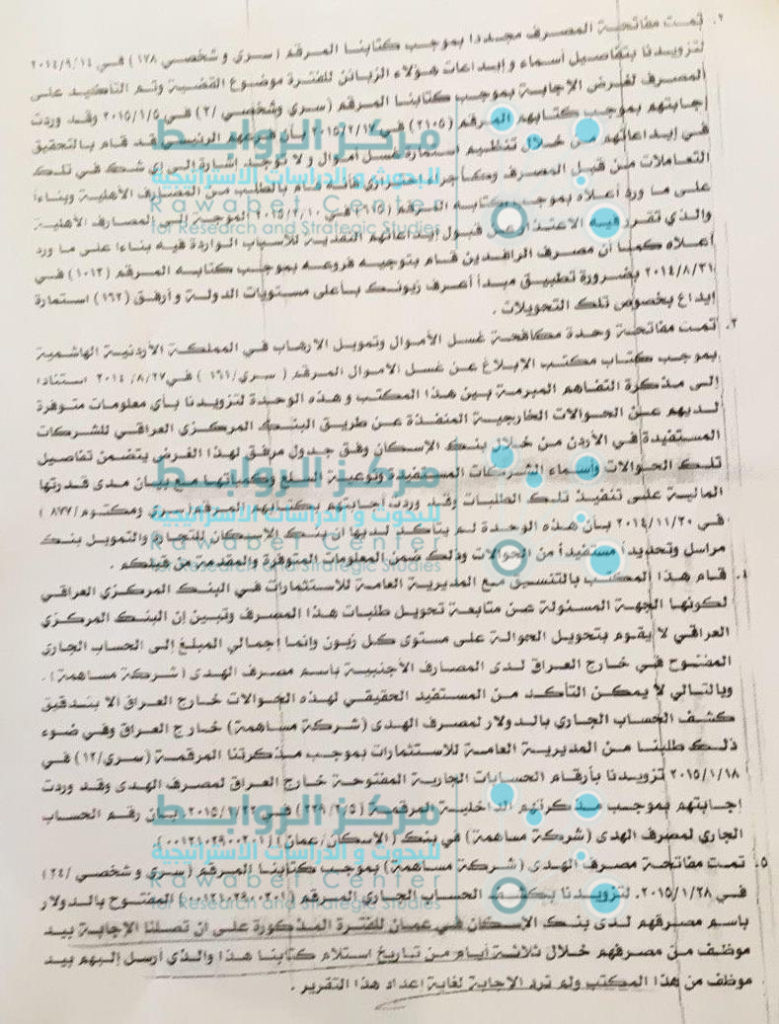 ٢. تمت مفاتحة المصرف مجددا بموجب كتابنا المرقم (سري وشخصي ١٧٨) في ٢٠١٤/٩/١٤
لتزويدنا بتفاصيل أسماء وإيداعات هؤلاء الزبائن للفترة موضوع القضية وتم التأكيد على
المصرف لغرض الإجابة بموجب كتابنا المرقم (سري وشخصي /٢) في ٢٠١٥/١/٥ وقد وردت
إجابتهم بموجب كتابهم المرقم (٢١٠٥) في ٢٠١٥/٢/١٧ بأن فرعهم الرئيسي قد قام بالتحقيق
في إيداعاتهم من خلال تنظيم استمارة غسل أموال و لا توجد إشارة إلى أي شك في تلك
التعاملات من قبل المصرف وكأجراء احترازي فأنه قام بالطلب من المصارف الأهلية وبناءاً
على ما ورد أعلاه بموجب كتابه المرقم (١١٥) في ٢٠١٥/٢/١٠ الموجة إلى المصارف الأهلية
والذي تقرر فيه الاعتذار عن قبول إيداعاتهم النقدية للأسباب الواردة فيه بناءا على ما ورد
أعلاه كما أن مصرف الرافدين قام بتوجيه فروعه بموجب كتابه المرقم (١٠١٢) في
٢٠١٤/٨/٣١ بضرورة تطبيق مبدأ أعرف زبونك بأعلى مستويات الدولة وأرفق (١٦٢) استمارة
إيداع بخصوص تلك التحويلات .
٣. تمت مفاتحة وحدة مكافحة غسل الأموال وتمويل الارهاب في المملكة الأردنية الهاشمية
بموجب كتاب مكتب الابلاغ عن غسل الاموال المرقم ( سري/١٦١ ) في ٢٠١٤/٨/٢٧ استنادا
إلى مذكرة التفاهم المبرمة بين هذا المكتب و هذه الوحدة لتزويدنا بأي معلومات متوفرة
لديهم عن الحوالات الخارجية المنفذة عن طريق البنك المركزي العراقي للشركات
المستفيدة في الأردن من خلال بنك الإسكان وفق جدول مرفق لهذا الغرض يتضمن تفاصيل
تلك الحوالات وأسماء الشركات المستفيدة ونوعية السلع وكمياتها مع بيان مدى قدرتها
المالية على تنفيذ تلك الطلبات وقد وردت أجابتهم بكتابهم المرقم (سري ومكتوم/٨٧٧ )
في ٢٠١٤/١١/٢٠ بأن هذه الوحدة لم يتأكد لديها ان بنك الإسكان للتجارة والتمويل بنك
مراسل وتحديداً مستفيداً من الحوالات وذلك ضمن المعلومات المتوفرة والمقدمة من قبلكم .
٤. قام هذا المكتب بالتنسيق مع المديرية العامة للاستثمارات في البنك المركزي العراقي
لكونها الجهة المسئولة عن متابعة تحويل طلبات هذا المصرف وتبين إن البنك المركزي
العراقي لا يقوم بتحويل الحوالة على مستوى كل زبون وانما إجمالي المبلغ إلى الحساب الجاري
المفتوح في خارج العراق لدى المصارف الأجنبية باسم مصرف الهدى (شركة مساهمة) .
وبالتالي لا يمكن التأكد من المستفيد الحقيقي لهذه الحوالات خارج العراق الا بتدقيق
كشف الحساب الجاري بالدولار لمصرف الهدى (شركة مساهمة) خارج العراق وفي ضوء
ذلك طلبنا من المديرية العامة للاستثمارات بموجب مذكرتنا المرقمة (سري/١٢) في
٢٠١٥/١/١٨ تزويدنا بأرقام الحسابات الجارية المفتوحة خارج العراق لمصرف الهدى وقد وردت
إجابتهم بموجب مذكرأتهم الداخلية المرقمة في ٢٠١٥ بان رقم الحساب
الجاري لمصرف الهدى (شركة مساهمة) في بنك (الإسكان/عمان)
٥. تمت مفاتحة مصرف الهدى (شركة مساهمة) بموجب كتابنا المرقم (سري و شخصي /٢٤)
في ٢٠١٥/١/٢٨. لتزويدنا بكشف الحساب الجاري المرقم المفتوح بالدولار
باسم مصرفهم لدى بنك الإسكان في عمان للفترة المذكورة على ان تصلنا الإجابة بيد
موظف من مصرفهم خلال ثلاثة أيام من تاريخ استلام كتابنا هذا والذي أرسل إليهم بيد
موظف من هذا المكتب ولم ترد الاجابة لغاية إعداد هذا التقرير .
مركز الروابط
للبحوث و الدراسات الاستراتيجية
Rawabet Center
for Research and Strategic Studies